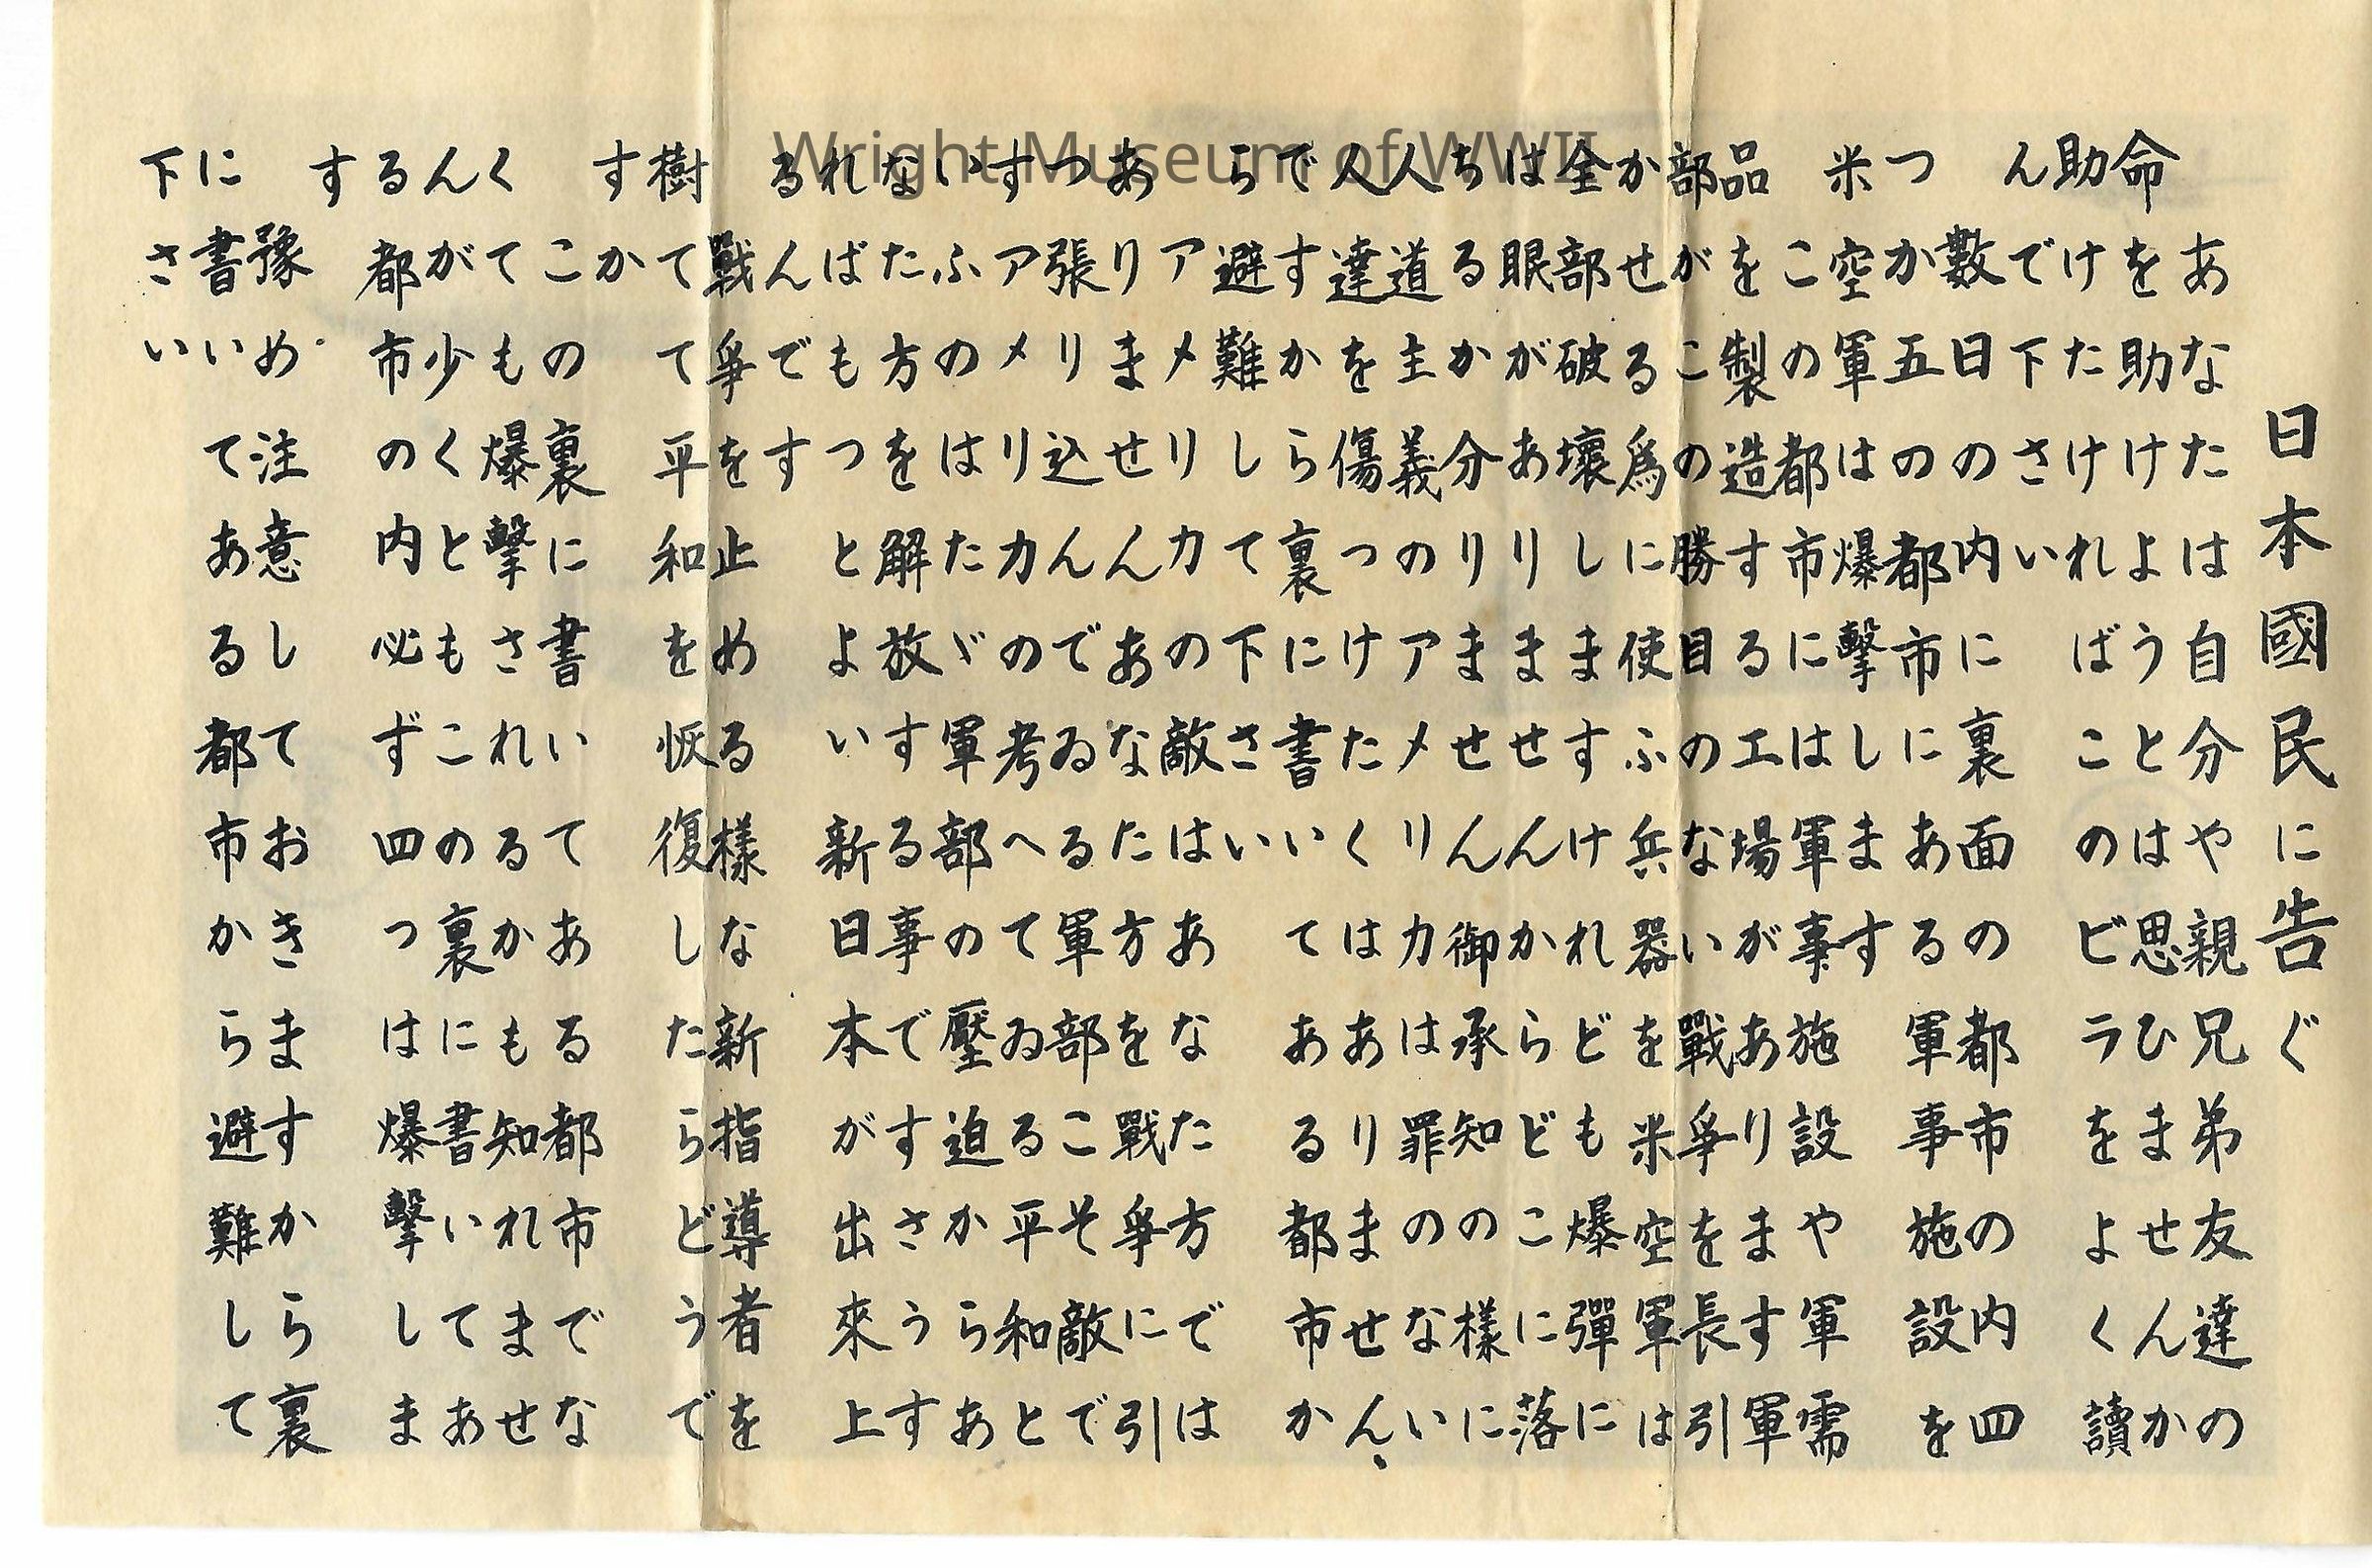 日本國民に告ぐ
あなたは自分や親兄弟友達の
命を助けようとは思ひませんか
助けたければこのビラをよく讀
んで下さい
數日の内に裏面の都市の内四
つか五の都市にある軍事施設を
米空軍は爆擊します
この都市には軍事施設や軍需
品を製造する工場があります軍
部がこの勝目のない戰爭を長引
かせる爲に使ふ兵器を米空軍は
全部破壞しますけれども爆彈に
は眼がありませんからどこに落
ちるか分りません御承知の様に
人道主義のアメリカは罪のない
人達を傷つけたくはありません、
ですから裏に書いてある都市か
ら避難して下さい
アメリカの敵はあなた方では
ありませんあなた方を戰爭に引
つ張り込んでゐる軍部こそ敵で
すアメリカの考へてゐる平和と
いふのはたゞ軍部の壓迫からあ
なた方を解放する事ですさうす
ればもつとよい新日本が出來上
るんです
戰爭を止める様な新指導者を
樹てて平和を恢復したらどうで
すか
この裏に書いてある都市でな
くても爆擊されるかも知れませ
んが少くともこの裏に書いてあ
る都市の内必ず四つは爆擊しま
す
豫め注意しておきますから裏
に書いてある都市から避難して
下さい
Wright Museum of WWII